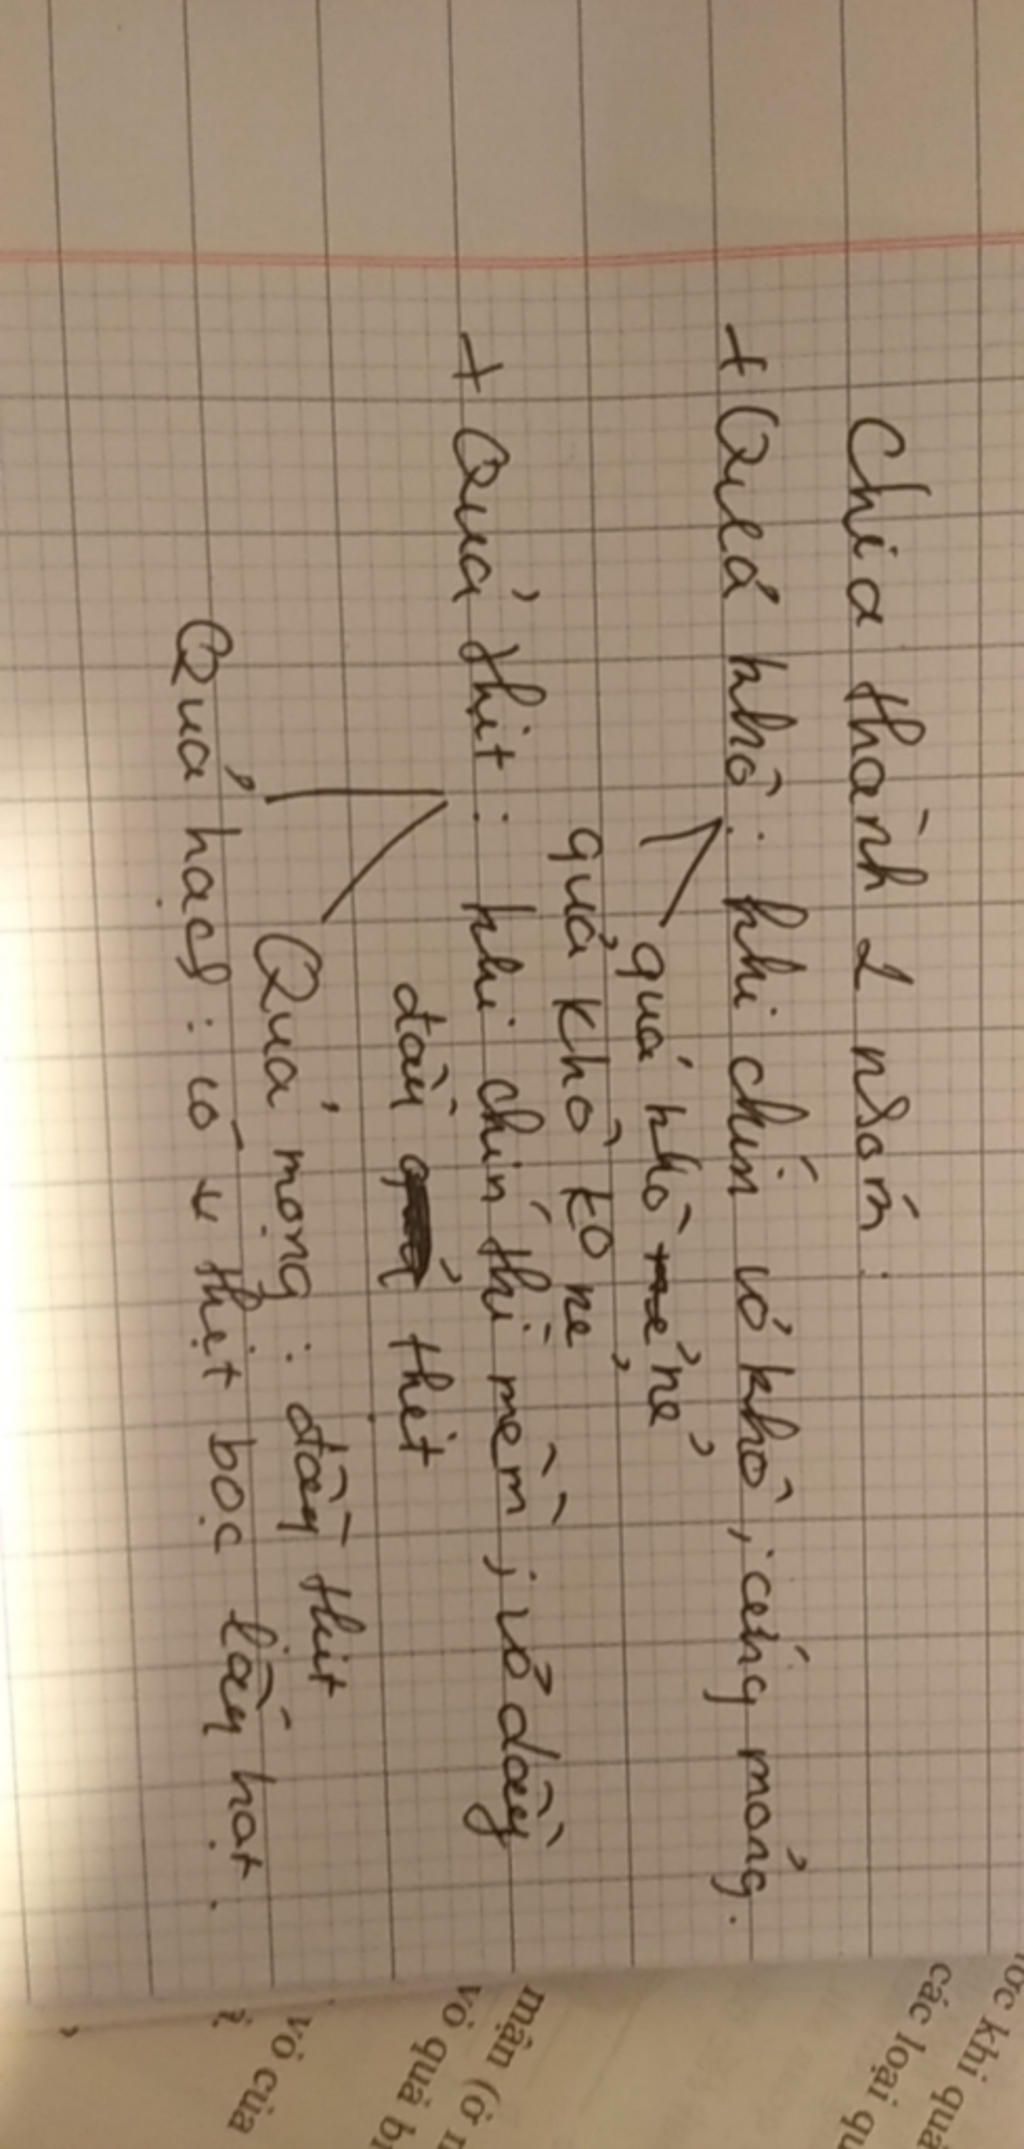 Chia thành 2 nhóm:
+ Quả khô: khi chín vỏ khô, cứng mỏng.
quả khô nẻ
quả khô ko nẻ
+ Quả thịt: khi chín thì mềm, vỏ dày
đầy thịt
Quả mọng: đầy thịt
Quả hạch: có thịt bọc lấy hạt.
ước khi qua
các loại qu
mận (ở n
vỏ quả bi
vỏ của